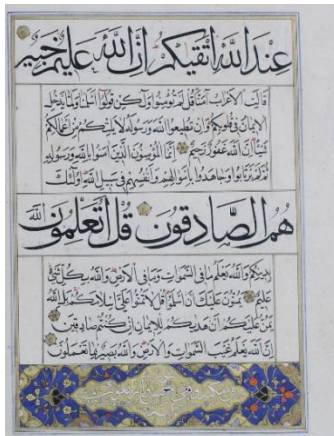 عِندَ اللَّهِ أَتْقَيكُمْ إِنَّ اللَّهَ عَلِيمٌ خَبِيرٌ
قَالَتِ الْأَعْرَابُ آمَنَّا قُل لَّمْ تُؤْمِنُوا وَلَكِن قُولُوا أَسْلَمْنَا وَلَمَّا يَدْخُلِ
الْإِيمَانُ فِي قُلُوبِكُمْ وَإِن تُطِيعُوا اللَّهَ وَرَسُولَهُ لَا يَلِتْكُم مِّنْ أَعْمَالِكُمْ
شَيْئًا إِنَّ اللَّهَ غَفُورٌ رَّحِيمٌ إِنَّمَا الْمُؤْمِنُونَ الَّذِينَ آمَنُوا بِاللَّهِ وَرَسُولِهِ
ثُمَّ لَمْ يَرْتَابُوا وَجَاهَدُوا بِأَمْوَالِهِمْ وَأَنفُسِهِمْ فِي سَبِيلِ اللَّهِ أُولَٰئِكَ
هُمُ الصَّادِقُونَ قُلْ أَتُعَلِّمُونَ اللَّهَ
بِدِينِكُمْ وَاللَّهُ يَعْلَمُ مَا فِي السَّمَوَاتِ وَمَا فِي الْأَرْضِ وَاللَّهُ بِكُلِّ شَيْءٍ
عَلِيمٌ يَمُنُّونَ عَلَيْكَ أَنْ أَسْلَمُوا قُل لَّا تَمُنُّوا عَلَيَّ إِسْلَامَكُم بَلِ اللَّهُ
يَمُنُّ عَلَيْكُمْ أَنْ هَدَيكُمْ لِلْإِيمَانِ إِن كُنتُمْ صَادِقِينَ
إِنَّ اللَّهَ يَعْلَمُ غَيْبَ السَّمَوَاتِ وَالْأَرْضِ وَاللَّهُ بَصِيرٌ بِمَا تَعْمَلُونَ